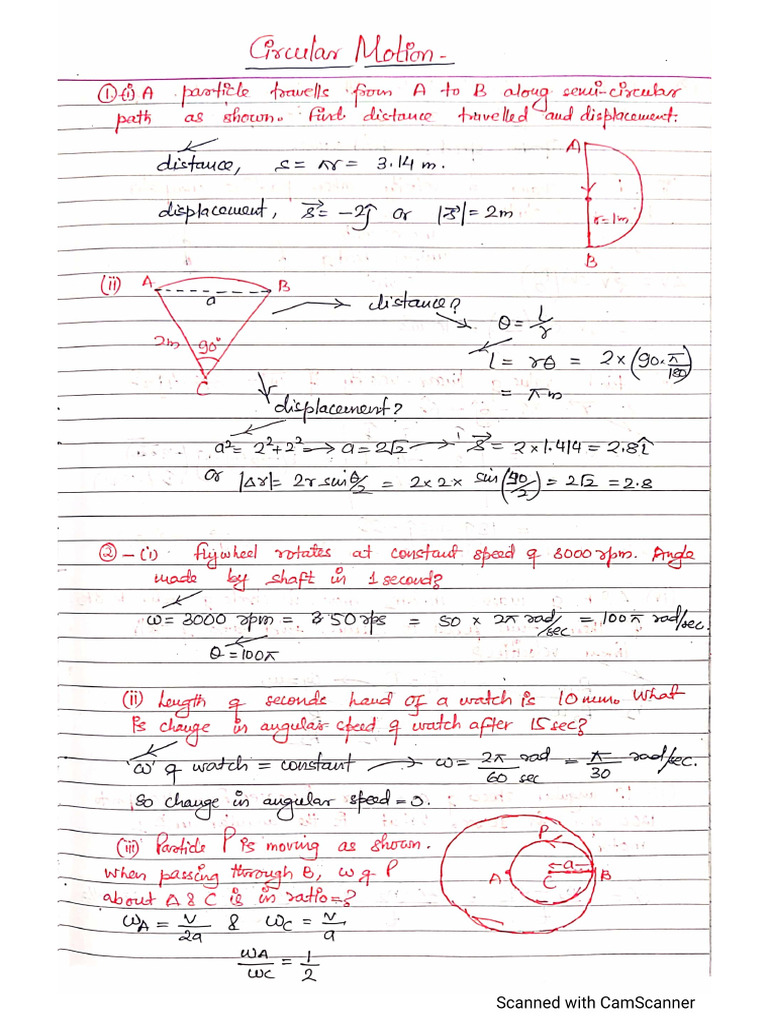 Circular Motion -
① (i) A particle travells from A to B along semi-circular
path as shown. Find distance travelled and displacement:
distance, s = πr = 3.14 m.
displacement, s⃗ = -2ĵ or |s⃗| = 2m
A
r=1m
B
(ii)
A
B
a
2m
90°
C
distance?
θ = l/r
l = rθ = 2×(90.π/180)
= π m
displacement?
a² = 2²+2² → a = 2√2 → s⃗ = 2×1.414 = 2.8î
or |Δr| = 2r sin θ/2 = 2×2× sin(90/2) = 2√2 = 2.8
② - (i) flywheel rotates at constant speed of 3000 rpm. Angle
made by shaft in 1 second?
ω = 3000 rpm = 50 rps = 50 × 2π rad/sec = 100π rad/sec.
θ = 100π
(ii) Length of seconds hand of a watch is 10 mm. What
is change in angular speed of watch after 15 sec?
'ω' of watch = constant → ω = 2π rad/60 sec = π/30 rad/sec.
so change in angular speed = 0.
(iii) Particle P is moving as shown.
When passing through B, ω of P
about A & C is in ratio = ?
P
a
A
C
B
ωA = v/2a & ωC = v/a
ωA/ωC = 1/2
Scanned with CamScanner